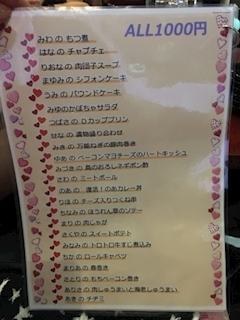 ALL1000円
みわ の もつ煮
はな の チャプチェ
りおな の 肉団子スープ
まゆみ の シフォンケーキ
うみ の パウンドケーキ
みゆ のかぼちゃサラダ
つばさ の Dカッププリン
せな の 漬物盛り合わせ
みき の 万能ねぎの豚肉巻き
ゆあ の ベーコンマヨチーズのハートキッシュ
みづき の 鳥のおろしネギポン酢
さわ の ミートボール
のあ の 復活!のあカレー丼
りほ の チーズ入りつくね串
ちなみ の ほうれん草のソテー
まり の 肉じゃが
さくや の スイートポテト
みなみ の トロトロ牛すじ煮込み
ちか の ロールキャベツ
まりあ の 春巻き
さとり の もちベーコン巻き
ありさ の 肉しゅうまいと海老しゅうまい
あき の チヂミ